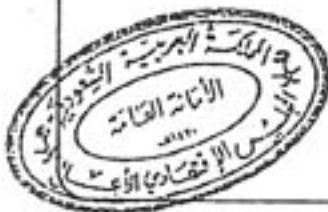 المملكة العربية السعودية
الأمانة العامة
المجلس الإقتصادي الأعلى